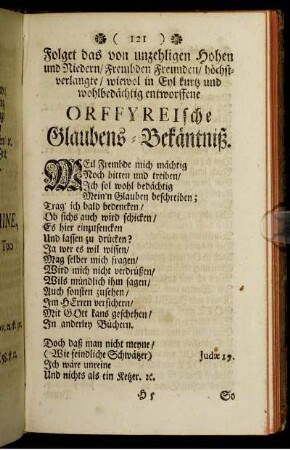 ( 121 )
Folget das von unzehligen Hohen
und Niedern/ Frembden Freunden/ höchst-
verlangte/ wiewol in Eyl kurtz und
wohlbedächtig entworffene
ORFFYREIsche
Glaubens-Bekäntniß.
WEil Frembde mich mächtig
Noch bitten und treiben/
Ich sol wohl bedächtig
Mein'n Glauben beschreiben;
Trag' ich bald bedencken/
Ob sichs auch wird schicken/
Es hier einzusencken
Und lassen zu drücken?
Ja wer es wil wissen/
Mag selber mich fragen/
Wird mich nicht verdrüssen/
Wils mündlich ihm sagen/
Auch sonsten zusehen/
Im HErren versichern/
Mit GOtt kans geschehen/
In anderley Büchern.
Doch daß man nicht meyne/
(Wie feindliche Schwätzer) Judæ 19.
Ich wäre unreine
Und nichts als ein Ketzer. ꝛc.
H 5 So
HNE,